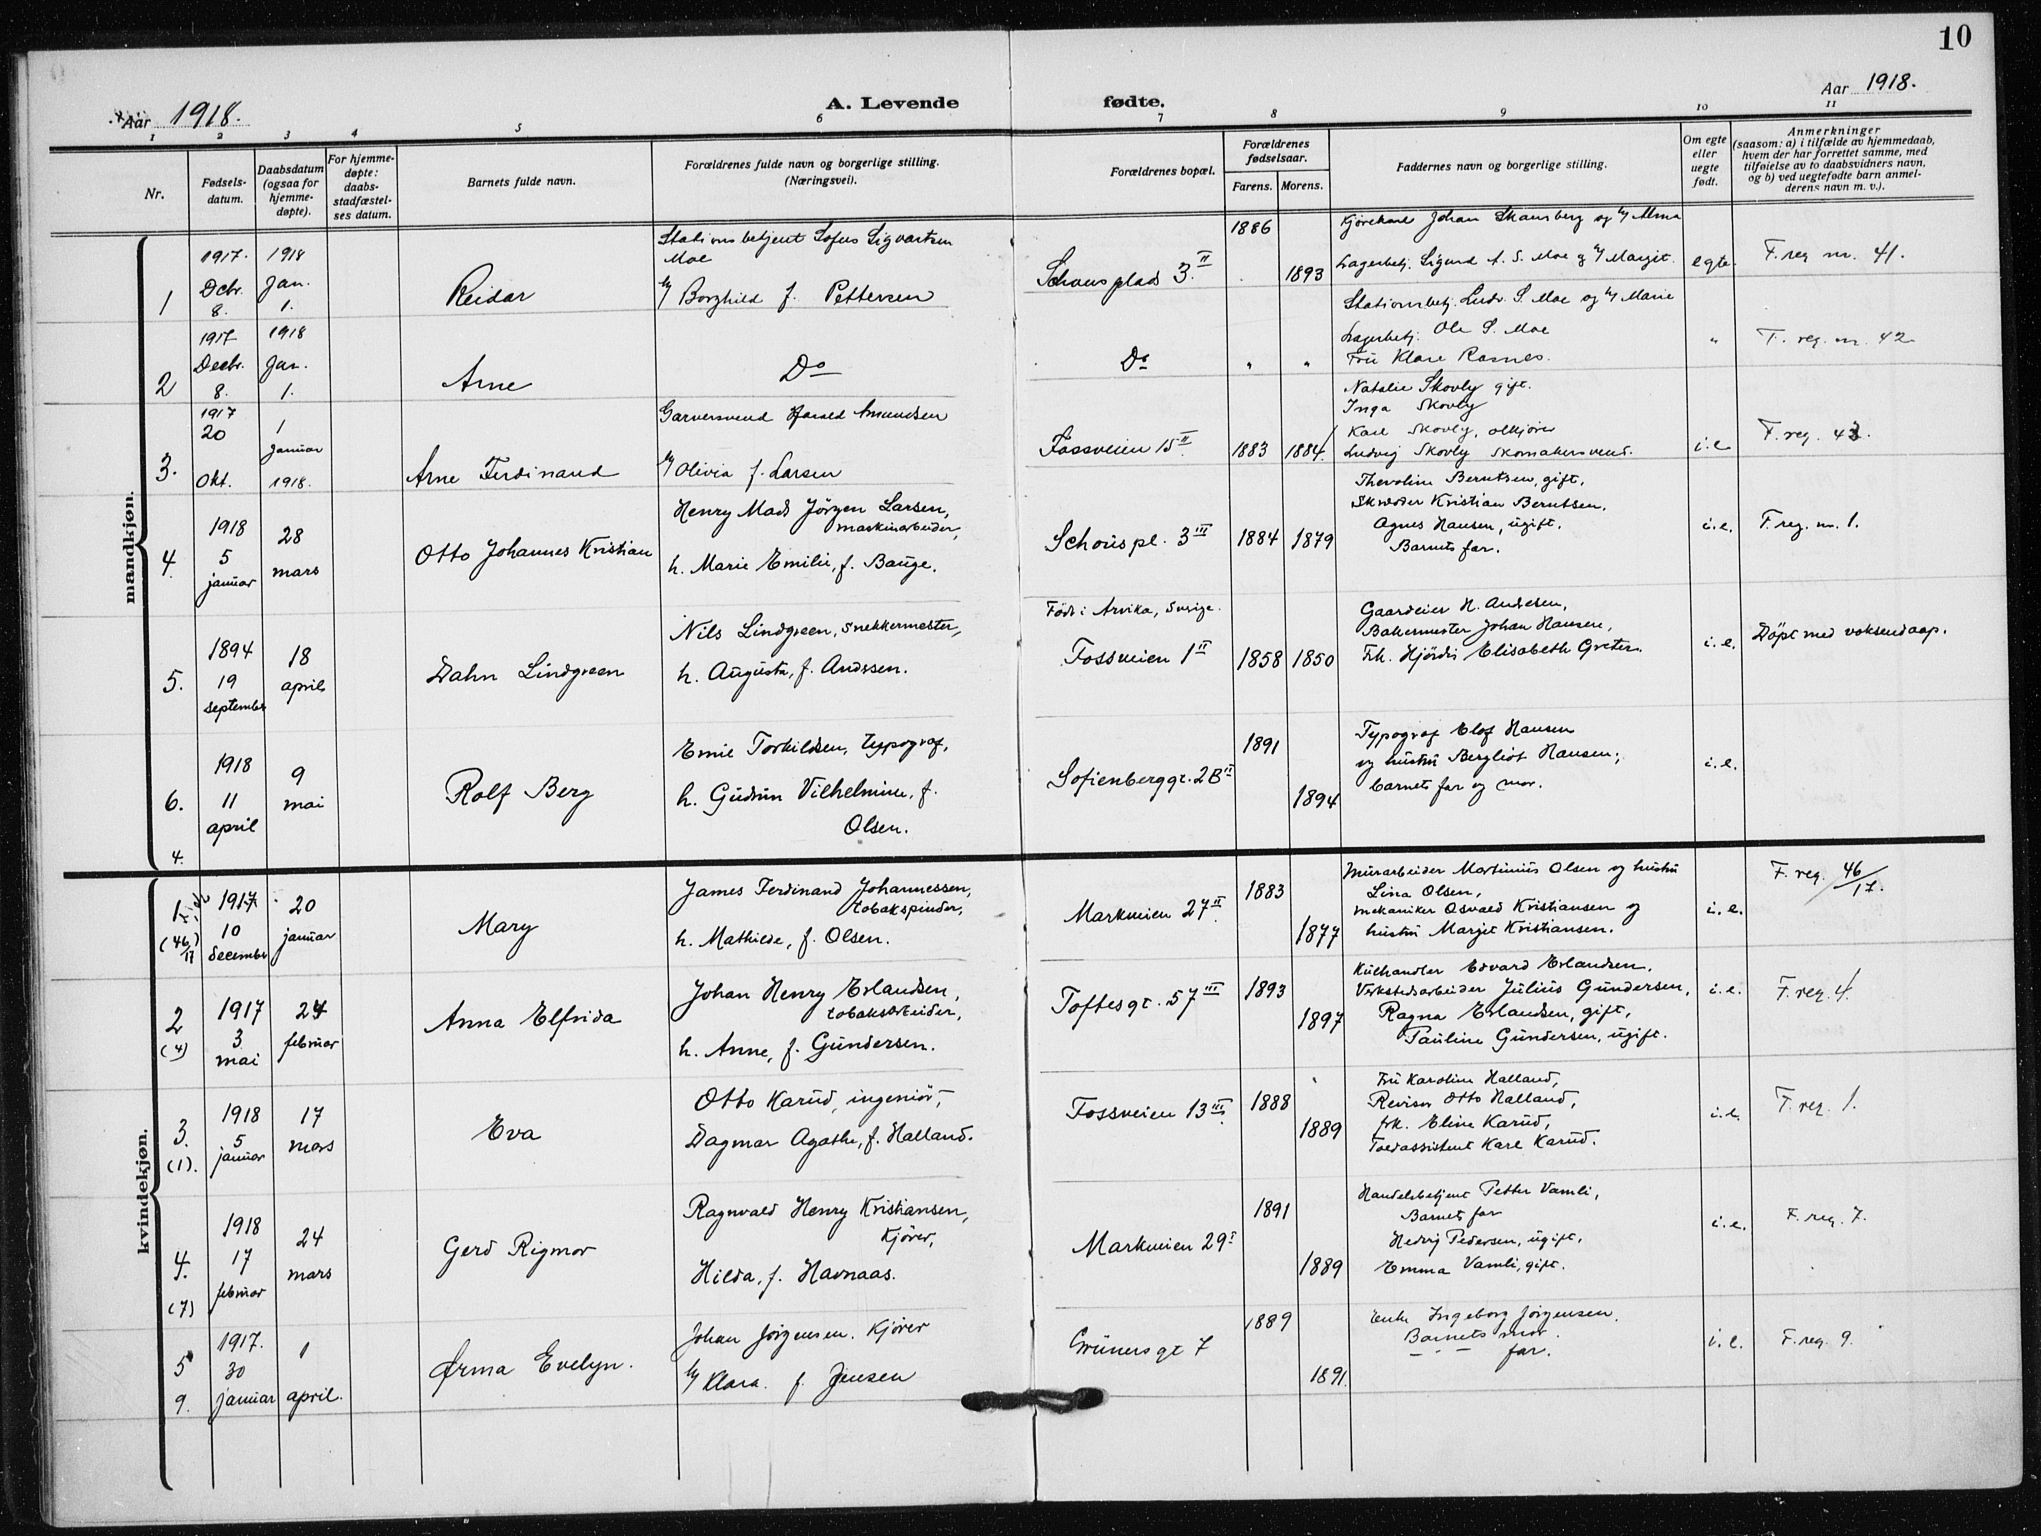 10
Aar 1918.
A. Levende fødte.
Aar 1918.
1 2 3 4 5 6 7 8 9 10 11
Nr.
Fødsels-
datum.
Daabsdatum
(ogsaa for
hjemme-
døpte).
For hjemme-
døpte:
daabs-
stadfæstel-
ses datum.
Barnets fulde navn.
Forældrenes fulde navn og borgerlige stilling.
(Næringsvei).
Forældrenes bopæl.
Forældrenes
fødselsaar.
Farens. Morens.
Faddernes navn og borgerlige stilling.
Om egte
eller
uegte
født.
Anmerkninger
(saasom: a) i tilfælde av hjemmedaab,
hvem der har forrettet samme, med
tilføielse av to daabsvidners navn,
og b) ved uegtefødte barn anmel-
derens navn m. v.).
mandkjøn.
1
1917.
Debr.
8.
1918
Jan.
1.
Reidar
Stationsbetjent Sofus Sigvartsen
Moe
h/ Borghild f. Pettersen
Schousplads 3 II
1886
1893
Kjørekarl Johan Skansberg og h/ Alma
Lagerbetj. Sigurd A. S. Moe og h/ Margit.
Stationsbetj. Ludv. S. Moe og h/ Marie
egte
F. reg nr. 41.
2
1917
Decbr.
8.
1918
Jan.
1.
Arne
Do
Do
"
"
Lagerbetj. Ole S. Moe
Fru Klare Rasnes.
"
F. reg. nr. 42
3.
1917
20
Okt.
1
Januar
1918.
Arne Ferdinand
Garversvend Harald Amundsen
h/ Olivia f. Larsen
Fossveien 15 II
1883
1884
Natalie Skovly gift.
Inga Skovly
Karl Skovly, ølkjører
Ludvig Skovly Skomakersvend.
i. e
F. reg. 43.
4.
1918
5
januar
28
mars
Otto Johannes Kristian
Henry Mads Jörgen Larsen,
maskinarbeider,
h. Marie Emilie, f. Bauge.
Schouspl. 3 III
1884
1879
Thevoline Berntsen, gift,
Skrædder Kristian Berntsen,
Agnes Hansen, ugift.
Barnets far.
i. e.
F. reg. nr. 1.
5.
1894
19
september
18
april
Dahn Lindgreen
Nils Lindgreen, snekkermester,
h. Augusta, f. Andssen.
Född i Arvika, Sverige.
Fossveien 1 II
1858
1850
Gaardeier H. Andssen,
Bakermester Johan Hansen,
Frk. Hjördis Elisabeth Greter.
i. e.
Döpt med voksendaap.
6.
4.
1918
11
april
9
mai
Rolf Berg
Emil Torkildsen, typograf,
h. Gudrun Vilhelmine, f.
Olsen.
Sofienberggt. 2B II
1891
1894
Typograf Elof Hansen
og hustru Bergliot Hansen;
barnets far og mor.
i. e.
kvindekjøn.
1
(46/17)
1917
10
december
20
januar
Mary
James Ferdinand Johannessen,
tobakspinder,
h. Mathilde, f. Olsen.
Markveien 27 II
1883
1877
Murarbeider Martinius Olsen og hustru
Lina Olsen,
mekaniker Osvald Kristiansen og
hustru Margit Kristiansen.
i. e.
F. reg. 46/17.
2
(4)
1917
3
mai
24
februar
Anna Elfrida
Johan Henry Erlandsen,
tobaksarbeider,
h. Anne, f. Gundersen.
Toftesgt. 57 III
1893
1897
Kulhandler Edvard Erlandsen,
Verkstedsarbeider Julius Gundersen,
Ragna Erlandsen, gift,
Pauline Gundersen, ugift.
i. e.
F. reg. 4.
3.
(1).
1918
5
januar
17
mars
Eva
Otto Karud, ingeniør,
Dagmar Agathe, f. Halland.
Fossveien 13 III
1888
1889
Fru Karoline Halland,
Revisor Otto Halland,
frk. Eline Karud,
Toldassistent Karl Karud.
i. e.
F. reg. 1.
4.
(7)
1918
17
februar
24
mars
Gerd Rigmor
Ragnvald Henry Kristiansen,
Kjører,
Hilda, f. Havnaas.
Markveien 29 I
1891
1889
Handelsbetjent Petter Vamli,
Barnets far
Hedvig Pedersen, ugift,
Emma Vamli, gift.
i. e.
F. reg. 7.
5
9.
1917.
30
januar
1
april.
Ørma Evelyn.
Johan Jörgensen. Kjører
h/ Klara. f. Jensen
Grünersgt 7
1889
1891.
Enke Ingeborg Jørgensen.
Barnets mor.
— " — far.
i. e.
F. reg. 9.